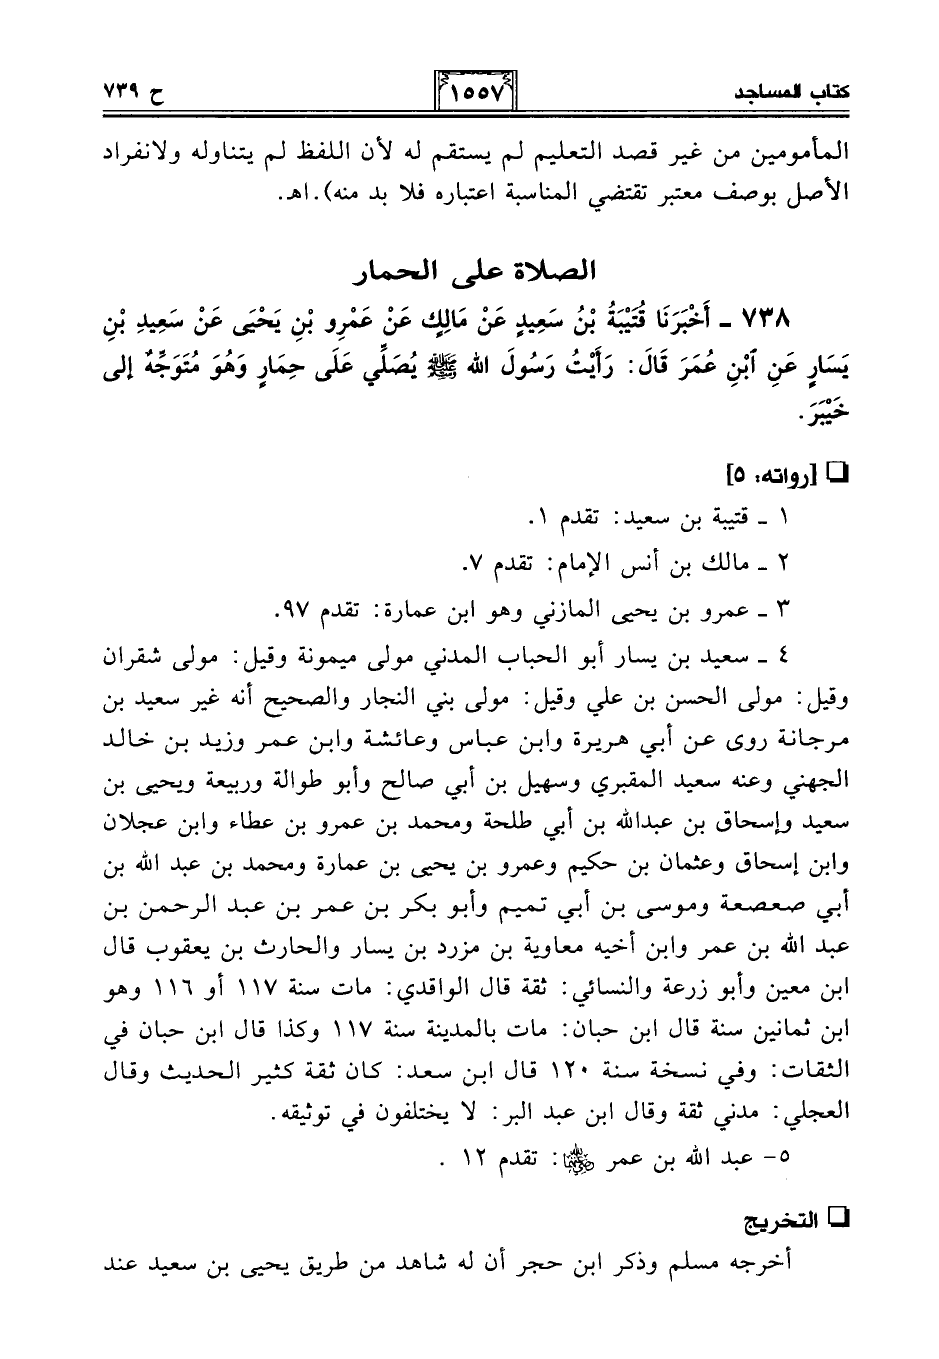 كتاب المساجد ١٥٥٧ ح ٧٣٩
المأمومين من غير قصد التعليم لم يستقم له لأن اللفظ لم يتناوله ولانفراد
الأصل بوصف معتبر تقتضي المناسبة اعتباره فلا بد منه). اهـ.
الصلاة على الحمار
٧٣٨ ـ أَخْبَرَنَا قُتَيْبَةُ بْنُ سَعِيدٍ عَنْ مَالِكٍ عَنْ عَمْرِو بْنِ يَحْيَى عَنْ سَعِيدِ بْنِ
يَسَارٍ عَنِ ٱبْنِ عُمَرَ قَالَ: رَأَيْتُ رَسُولَ الله ﷺ يُصَلِّي عَلَى حِمَارٍ وَهُوَ مُتَوَجِّهٌ إلى
خَيْبَرَ.
❏ [رواته: ٥]
١ ـ قتيبة بن سعيد: تقدم ١.
٢ ـ مالك بن أنس الإمام: تقدم ٧.
٣ ـ عمرو بن يحيى المازني وهو ابن عمارة: تقدم ٩٧.
٤ ـ سعيد بن يسار أبو الحباب المدني مولى ميمونة وقيل: مولى شقران
وقيل: مولى الحسن بن علي وقيل: مولى بني النجار والصحيح أنه غير سعيد بن
مرجانة روى عن أبي هريرة وابن عباس وعائشة وابن عمر وزيد بن خالد
الجهني وعنه سعيد المقبري وسهيل بن أبي صالح وأبو طوالة وربيعة ويحيى بن
سعيد وإسحاق بن عبدالله بن أبي طلحة ومحمد بن عمرو بن عطاء وابن عجلان
وابن إسحاق وعثمان بن حكيم وعمرو بن يحيى بن عمارة ومحمد بن عبد الله بن
أبي صعصعة وموسى بن أبي تميم وأبو بكر بن عمر بن عبد الرحمن بن
عبد الله بن عمر وابن أخيه معاوية بن مزرد بن يسار والحارث بن يعقوب قال
ابن معين وأبو زرعة والنسائي: ثقة قال الواقدي: مات سنة ١١٧ أو ١١٦ وهو
ابن ثمانين سنة قال ابن حبان: مات بالمدينة سنة ١١٧ وكذا قال ابن حبان في
الثقات: وفي نسخة سنة ١٢٠ قال ابن سعد: كان ثقة كثير الحديث وقال
العجلي: مدني ثقة وقال ابن عبد البر: لا يختلفون في توثيقه.
٥- عبد الله بن عمر رضي الله عنهما: تقدم ١٢ .
❏ التخريج
أخرجه مسلم وذكر ابن حجر أن له شاهد من طريق يحيى بن سعيد عند